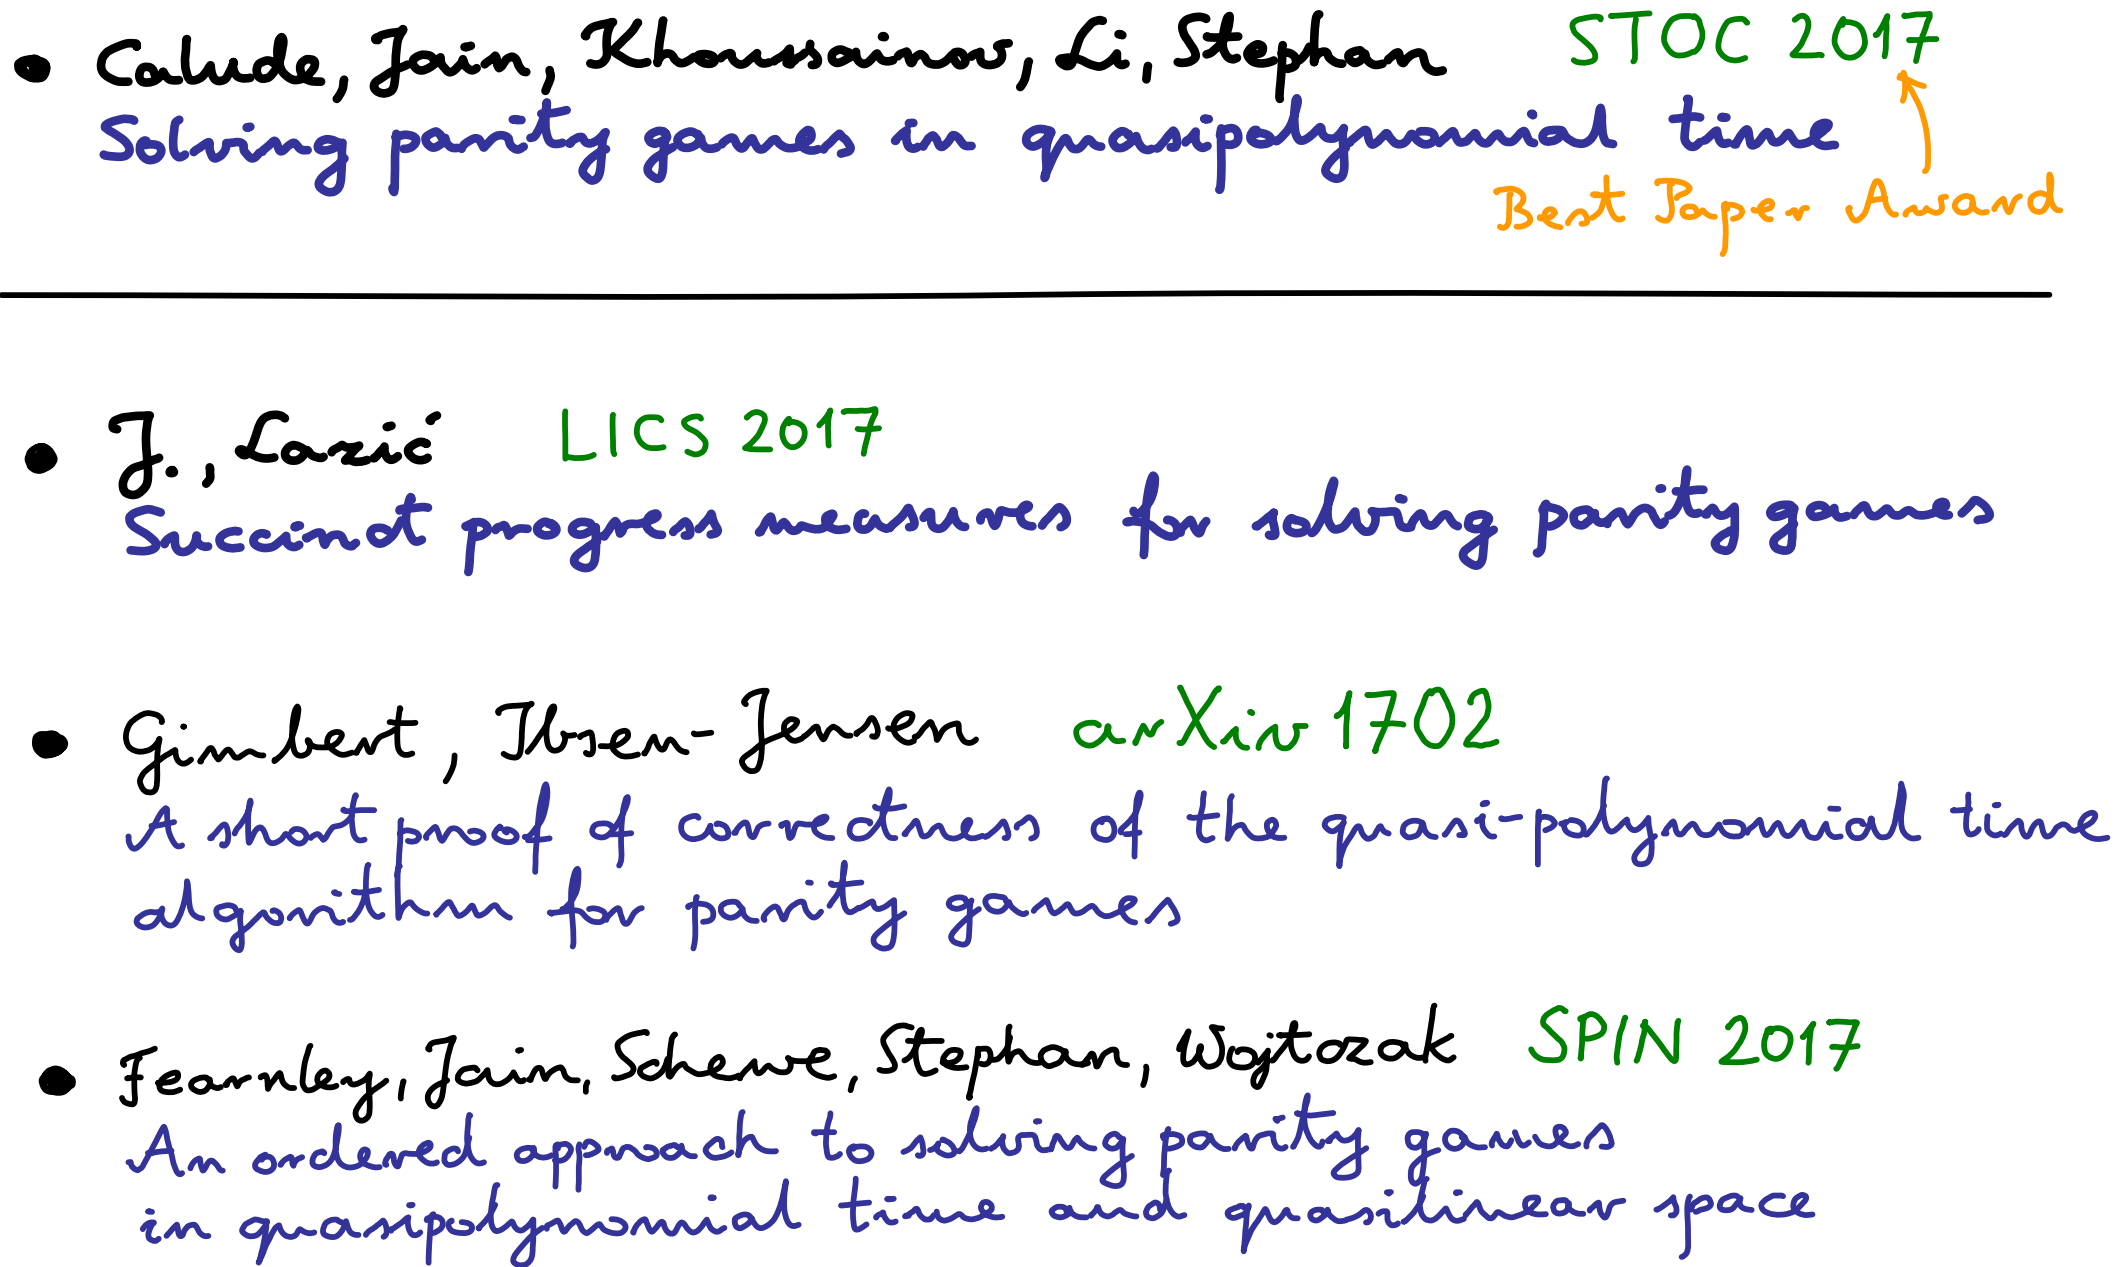 • Calude, Jain, Khoussainov, Li, Stephan STOC 2017
Solving parity games in quasipolynomial time
Best Paper Award
• J., Lazić LICS 2017
Succinct progress measures for solving parity games
• Gimbert, Ibsen-Jensen arXiv 1702
A short proof of correctness of the quasi-polynomial time
algorithm for parity games
• Fearnley, Jain, Schewe, Stephan, Wojtczak SPIN 2017
An ordered approach to solving parity games
in quasipolynomial time and quasilinear space